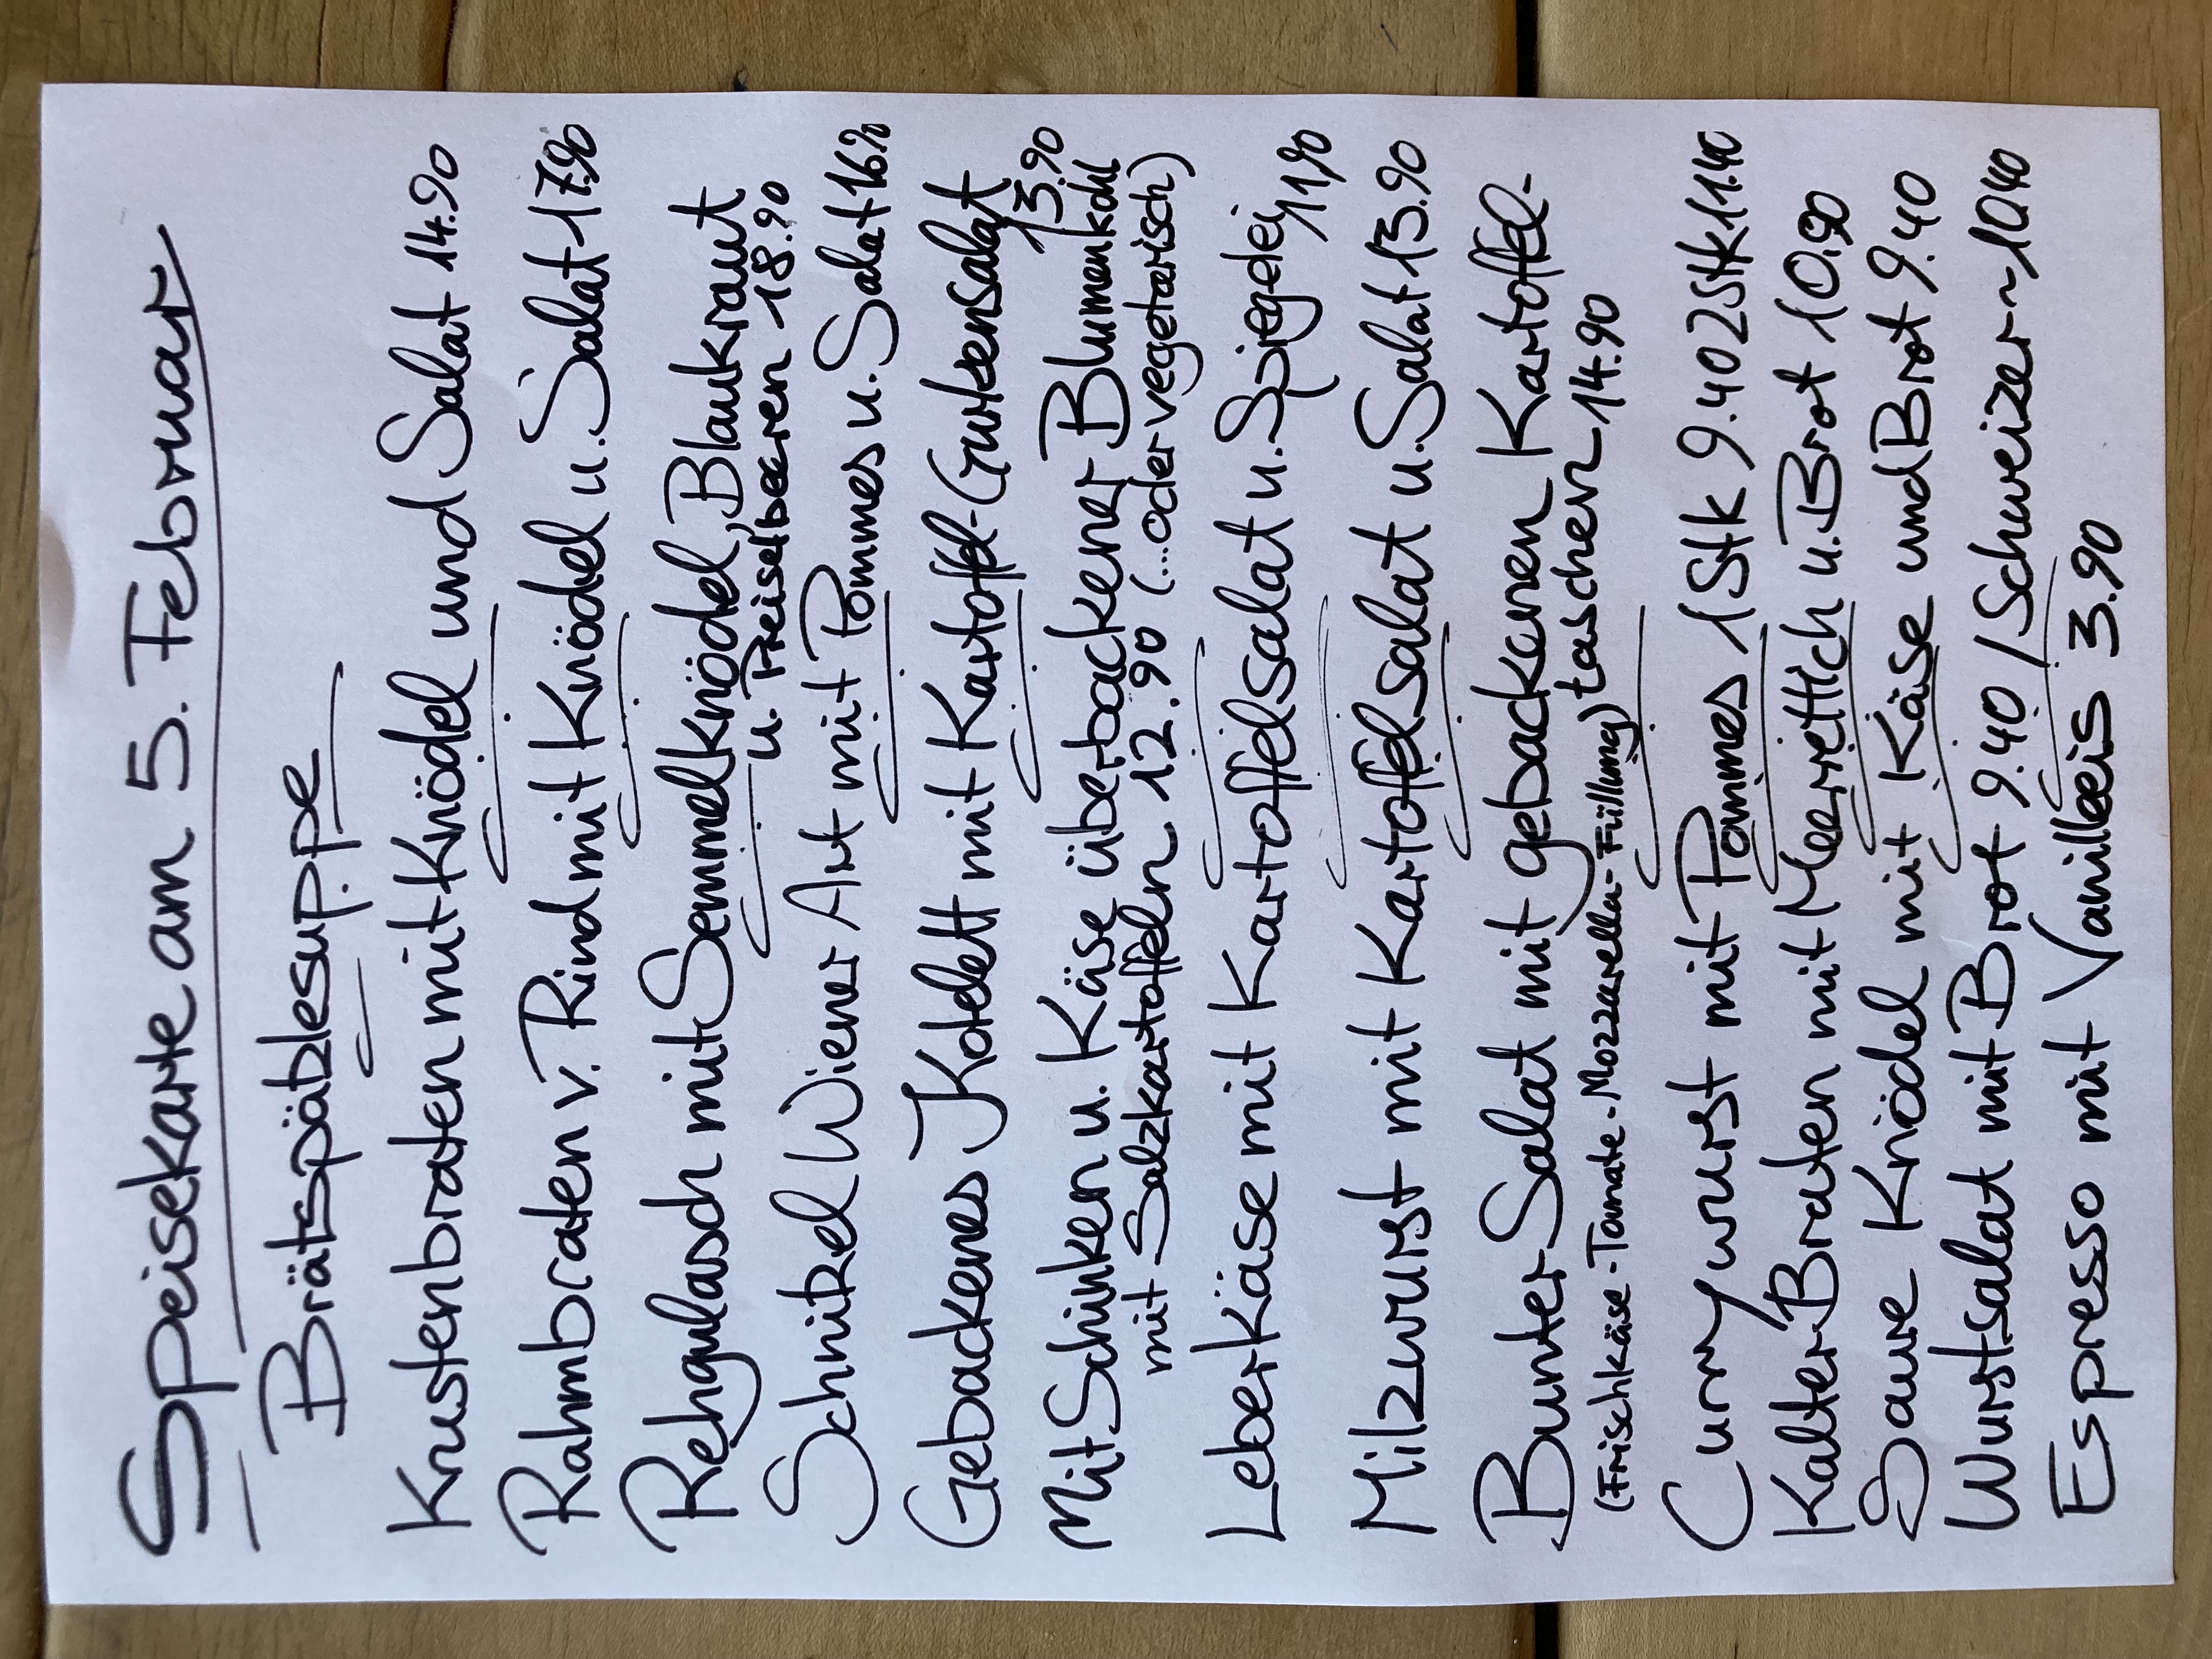 Speisekarte am 5. Februar
Brätspätzlesuppe
Krustenbraten mit Knödel und Salat 14.90
Rahmbraten v. Rind mit Knödel u. Salat 17.90
Rehgulasch mit Semmelknödel, Blaukraut
u. Preiselbeeren 18.90
Schnitzel Wiener Art mit Pommes u. Salat 16.90
Gebackenes Kotelett mit Kartoffel-Gurkensalat
13.90
Mit Schinken u. Käse überbackener Blumenkohl
mit Salzkartoffeln 12.90 (...oder vegetarisch)
Leberkäse mit Kartoffelsalat u. Spiegelei 11,90
Milzwurst mit Kartoffelsalat u. Salat 13.90
Bunter Salat mit gebackenen Kartoffel-
(Frischkäse-Tomate-Mozzarella-Füllung) taschen 14.90
Currywurst mit Pommes 1Stk 9.40 2Stk 11.40
Kalter Braten mit Meerrettich u. Brot 10.90
Saure Knödel mit Käse und Brot 9.40
Wurstsalat mit Brot 9.40 / Schweizer~10.40
Espresso mit Vanilleeis 3.90